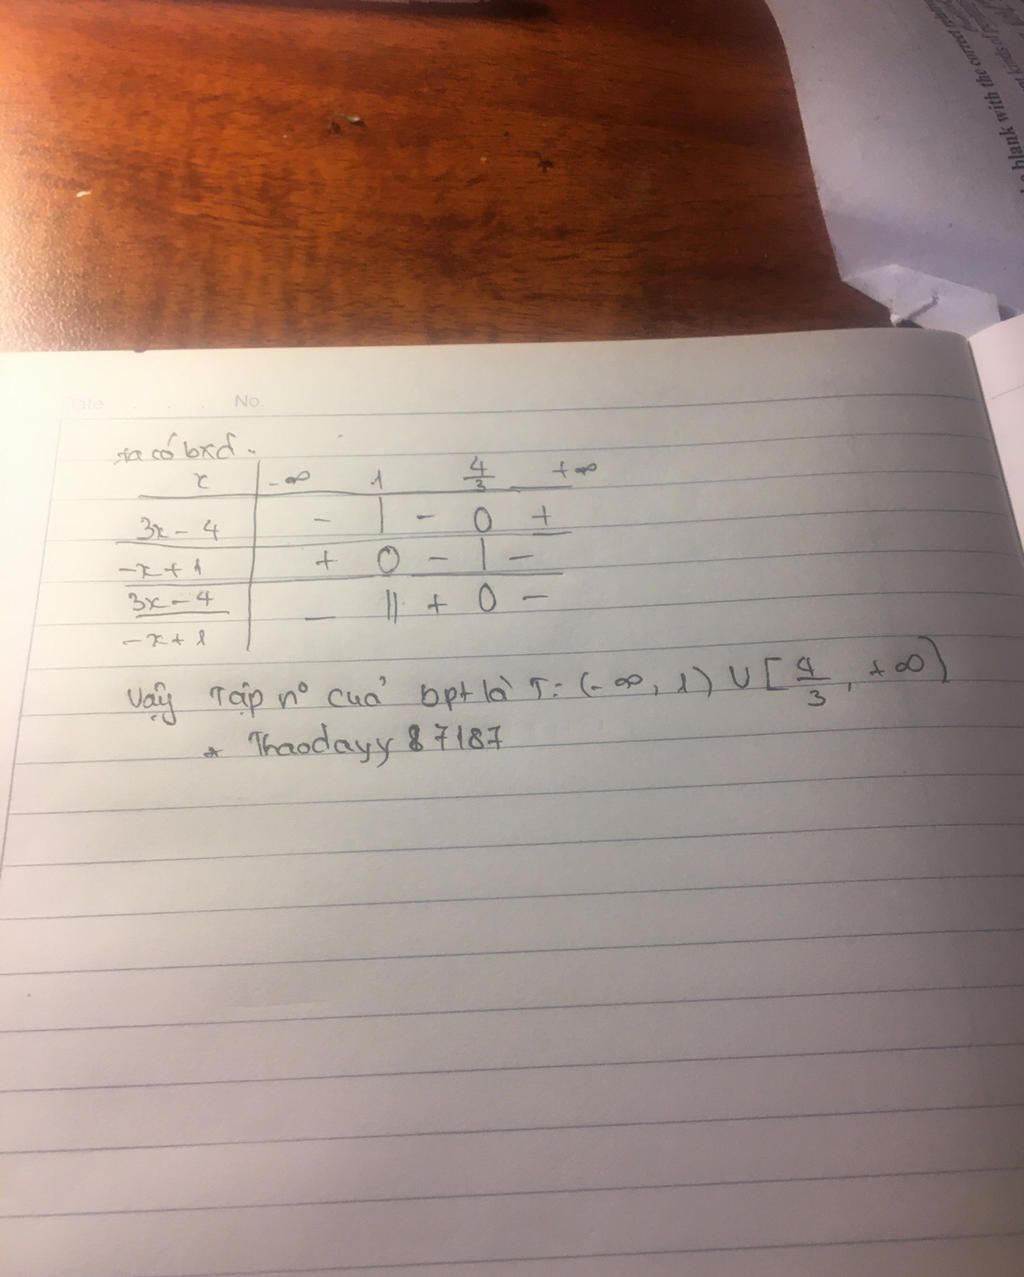 blank with the correct
Date . . . No.
ta có bxd.
x -∞ 1 4/3 +∞
3x - 4 - | - 0 +
-x + 1 + 0 - | -
3x - 4 / -x + 1 - || + 0 -
Vậy Tập n° của bpt là T: (-∞, 1) ∪ [4/3, +∞)
* Thaodayy 87187